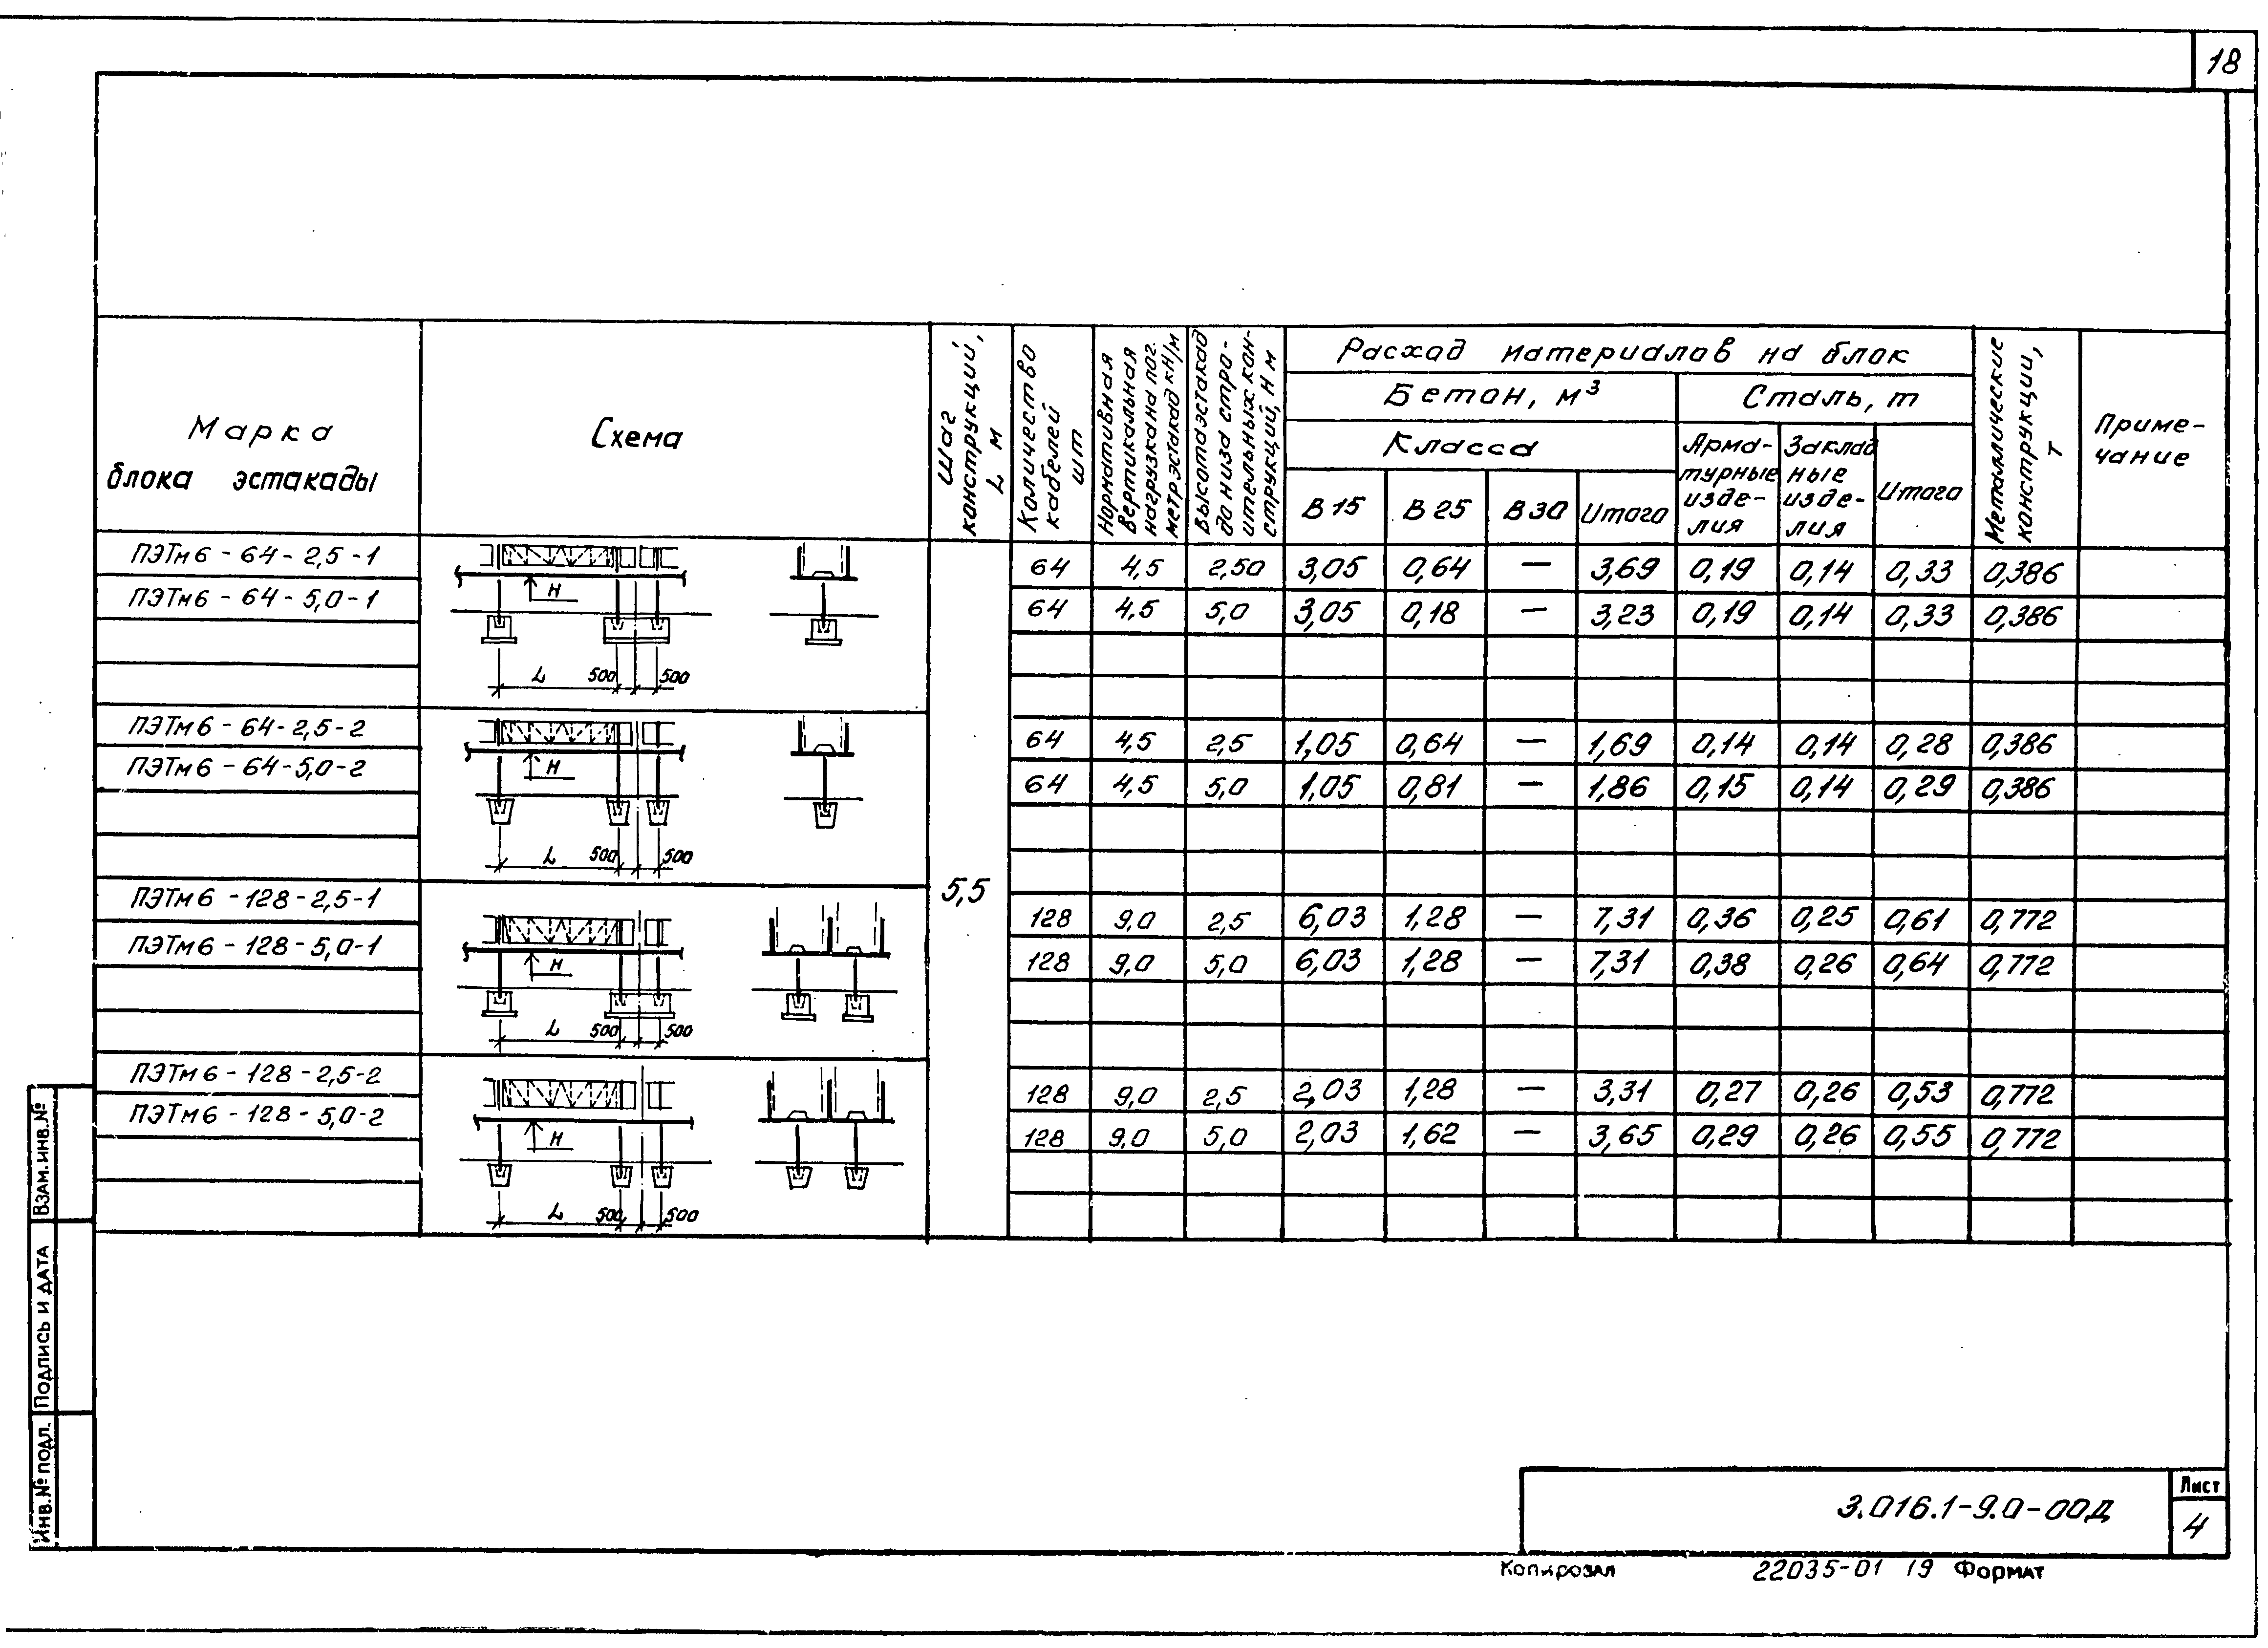 18
Марка
блока эстакады
Схема
Шаг
конструкций,
L м
Количество
кабелей
шт
Нормативная
вертикальная
нагрузка на пог.
метр эстакад кН/м
Высота эстакад
до низа стро-
ительных кон-
струкций, Н м
Расход материалов на блок
Бетон, м³
Сталь, т
Класса
В15
В25
В30
Итого
Арма-
турные
изде-
лия
Заклад
ные
изде-
лия
Итого
Металлические
конструкции,
т
Приме-
чание
ПЭТм6-64-2,5-1 64 4,5 2,50 3,05 0,64 — 3,69 0,19 0,14 0,33 0,386
ПЭТм6-64-5,0-1 64 4,5 5,0 3,05 0,18 — 3,23 0,19 0,14 0,33 0,386
Н
L 500 500
ПЭТм6-64-2,5-2 64 4,5 2,5 1,05 0,64 — 1,69 0,14 0,14 0,28 0,386
ПЭТм6-64-5,0-2 64 4,5 5,0 1,05 0,81 — 1,86 0,15 0,14 0,29 0,386
Н
L 500 500
5,5
ПЭТм6-128-2,5-1 128 9,0 2,5 6,03 1,28 — 7,31 0,36 0,25 0,61 0,772
ПЭТм6-128-5,0-1 128 9,0 5,0 6,03 1,28 — 7,31 0,38 0,26 0,64 0,772
Н
L 500 500
ПЭТм6-128-2,5-2 128 9,0 2,5 2,03 1,28 — 3,31 0,27 0,26 0,53 0,772
ПЭТм6-128-5,0-2 128 9,0 5,0 2,03 1,62 — 3,65 0,29 0,26 0,55 0,772
Н
L 500 500
Взам. инв. №
Подпись и дата
Инв. № подл.
3.016.1-9.0-00Д
Лист
4
Копировал 22035-01 19 Формат